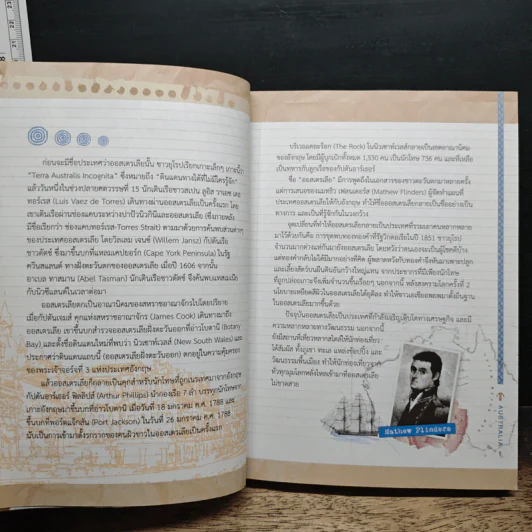 ก่อนจะมีชื่อประเทศว่าออสเตรเลียนั้น ชาวยุโรปเรียกเกาะเล็กๆ เกาะนี้ว่า
"Terra Australis Incognita" ซึ่งหมายถึง "ดินแดนทางใต้ที่ไม่มีใครรู้จัก"
แล้ววันหนึ่งในช่วงปลายศตวรรษที่ 15 นักเดินเรือชาวสเปน ลูอิส วาเอซ เดอ
ทอร์เรส (Luis Vaez de Torres) เดินทางผ่านออสเตรเลียเป็นครั้งแรก โดย
เขาเดินเรือผ่านช่องแคบระหว่างปาปัวนิวกินีและออสเตรเลีย (ซึ่งภายหลัง
มีชื่อเรียกว่า ช่องแคบทอร์เรส-Torres Strait) ตามมาด้วยการค้นพบส่วนต่างๆ
ของประเทศออสเตรเลีย โดยวิลเลม เจนซ์ (Willem Jansz) กัปตันเรือ
ชาวดัตช์ ซึ่งมาขึ้นบกที่แหลมเคปยอร์ก (Cape York Peninsula) ในรัฐ
ควีนสแลนด์ ทางฝั่งตะวันตกของออสเตรเลีย เมื่อปี 1606 จากนั้น
อาเบล ทาสมาน (Abel Tasman) นักเดินเรือชาวดัตช์ จึงค้นพบแทสเมเนีย
กับนิวซีแลนด์ในเวลาต่อมา
ออสเตรเลียตกเป็นอาณานิคมของสหราชอาณาจักรไปโดยปริยาย
เมื่อกัปตันเจมส์ คุกแห่งสหราชอาณาจักร (James Cook) เดินทางมาถึง
ออสเตรเลีย เขาขึ้นบกสำรวจออสเตรเลียฝั่งตะวันออกที่อ่าวโบตานี (Botany
Bay) และตั้งชื่อดินแดนใหม่ที่พบว่า นิวเซาท์เวลส์ (New South Wales) และ
ประกาศว่าดินแดนแถบนี้ (ออสเตรเลียฝั่งตะวันออก) ตกอยู่ในความคุ้มครอง
ของพระเจ้าจอร์จที่ 3 แห่งประเทศอังกฤษ
แล้วออสเตรเลียก็กลายเป็นคุกสำหรับนักโทษที่ถูกเนรเทศมาจากอังกฤษ
กัปตันอาร์เธอร์ ฟิลลิปส์ (Arthur Phillips) นำกองเรือ 7 ลำ บรรทุกนักโทษจาก
เกาะอังกฤษมาขึ้นบกที่อ่าวโบตานี เมื่อวันที่ 18 มกราคม ค.ศ. 1788 และ
ขึ้นบกที่พอร์ตแจ็กสัน (Port Jackson) ในวันที่ 26 มกราคม ค.ศ. 1788
นับเป็นการเข้ามาตั้งรกรากของคนผิวขาวในออสเตรเลียเป็นครั้งแรก
บริเวณเดอะร็อก (The Rock) ในนิวเซาท์เวลส์กลายเป็นเขตอาณานิคม
ของอังกฤษ โดยมีผู้บุกเบิกทั้งหมด 1,530 คน เป็นนักโทษ 736 คน และที่เหลือ
เป็นทหารกับลูกเรือของกัปตันอาร์เธอร์
ชื่อ "ออสเตรเลีย" มีการพูดถึงในเอกสารของชาวตะวันตกมาหลายครั้ง
แต่การเสนอของแมทธิว เฟลนเดอร์ส (Mathew Flinders) ผู้จัดทำแผนที่
ประเทศออสเตรเลียให้กับอังกฤษ ทำให้ชื่อออสเตรเลียกลายเป็นชื่ออย่างเป็น
ทางการ และเป็นที่รู้จักกันในวงกว้าง
จุดเปลี่ยนที่ทำให้ออสเตรเลียกลายเป็นประเทศที่รวมเอาคนหลากหลาย
มาไว้ด้วยกันคือ การขุดพบทองคำที่รัฐวิกตอเรียในปี 1851 ชาวยุโรป
จำนวนมากต่างแห่กันมายังออสเตรเลีย โดยหวังว่าตนเองจะเป็นผู้โชคดีบ้าง
แต่ทองคำกลับไม่ได้มีมากอย่างที่คิด ผู้พลาดหวังกับทองคำจึงหันมาเพาะปลูก
และเลี้ยงสัตว์บนผืนดินอันกว้างใหญ่แทน จากประชากรที่มีเพียงนักโทษ
ที่ถูกปล่อยเกาะจึงเพิ่มจำนวนขึ้นเรื่อยๆ นอกจากนี้ หลังสงครามโลกครั้งที่ 2
นโยบายเหยียดสีผิวในออสเตรเลียได้ยุติลง ทำให้ชาวเอเชียอพยพมาตั้งถิ่นฐาน
ในออสเตรเลียมากขึ้นด้วย
ปัจจุบันออสเตรเลียเป็นประเทศที่กำลังเจริญเติบโตทางเศรษฐกิจ และมี
ความหลากหลายทางวัฒนธรรม นอกจากนี้
ยังมีสถานที่เที่ยวหลากสไตล์ให้นักท่องเที่ยว
ได้สัมผัส ทั้งภูเขา ทะเล แหล่งช้อปปิ้ง และ
วัฒนธรรมพื้นเมือง ทำให้นักท่องเที่ยวจาก
ทั่วทุกมุมโลกหลั่งไหลเข้ามาที่ออสเตรเลีย
ไม่ขาดสาย
Mathew Flinders
AUSTRALIA